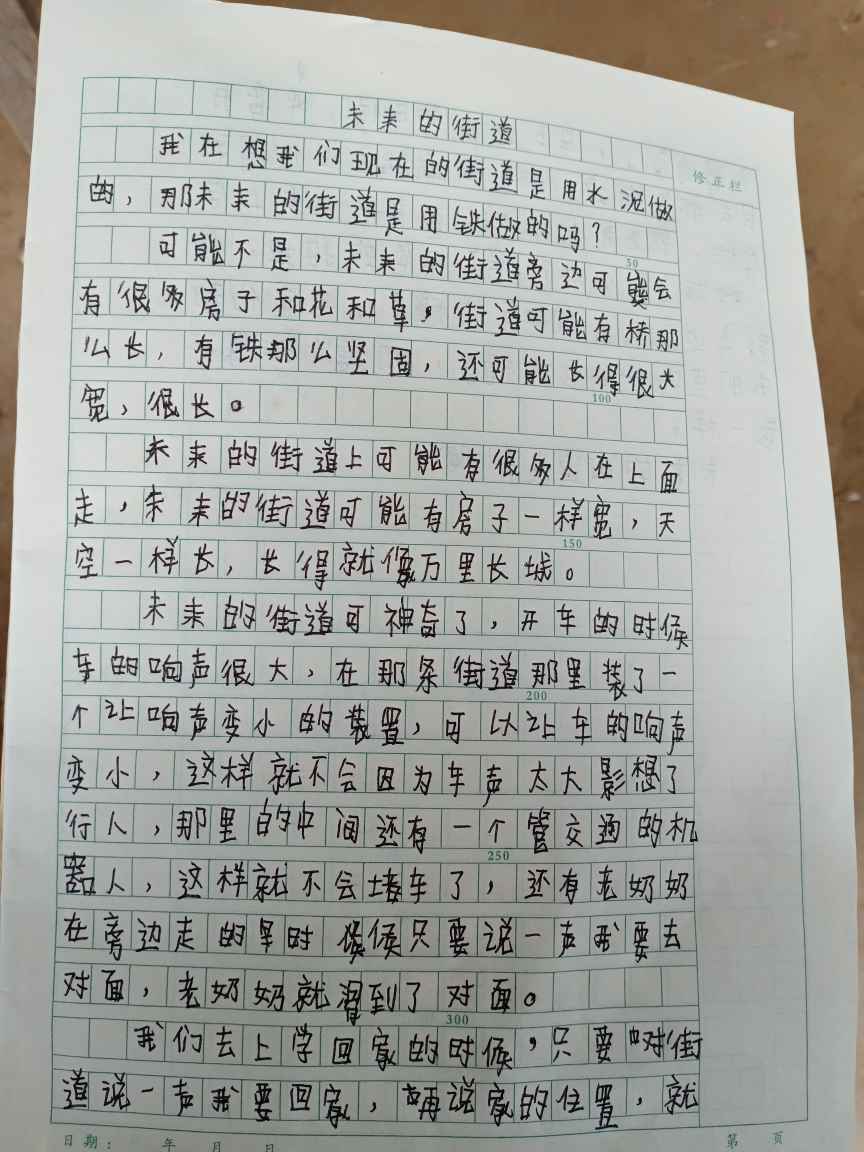 未来的街道
修正栏
我在想我们现在的街道是用水泥做
的，那未来的街道是用铁做的吗？
50
可能不是，未来的街道旁边可能会
有很多房子和花和草，街道可能有桥那
么长，有铁那么坚固，还可能长得很大
100
宽，很长。
未来的街道上可能有很多人在上面
走，未来的街道可能有房子一样宽，天
150
空一样长，长得就像万里长城。
未来的街道可神奇了，开车的时候
车的响声很大，在那条街道那里装了一
200
个让响声变小的装置，可以让车的响声
变小，这样就不会因为车声太大影想了
行人，那里的中间还有一个管交通的机
250
器人，这样就不会堵车了，还有老奶奶
在旁边走的时候只要说一声我要去
对面，老奶奶就滑到了对面。
300
我们去上学回家的时候，只要对街
道说一声我要回家，再说家的位置，就
日期： 年 月 日
第 页